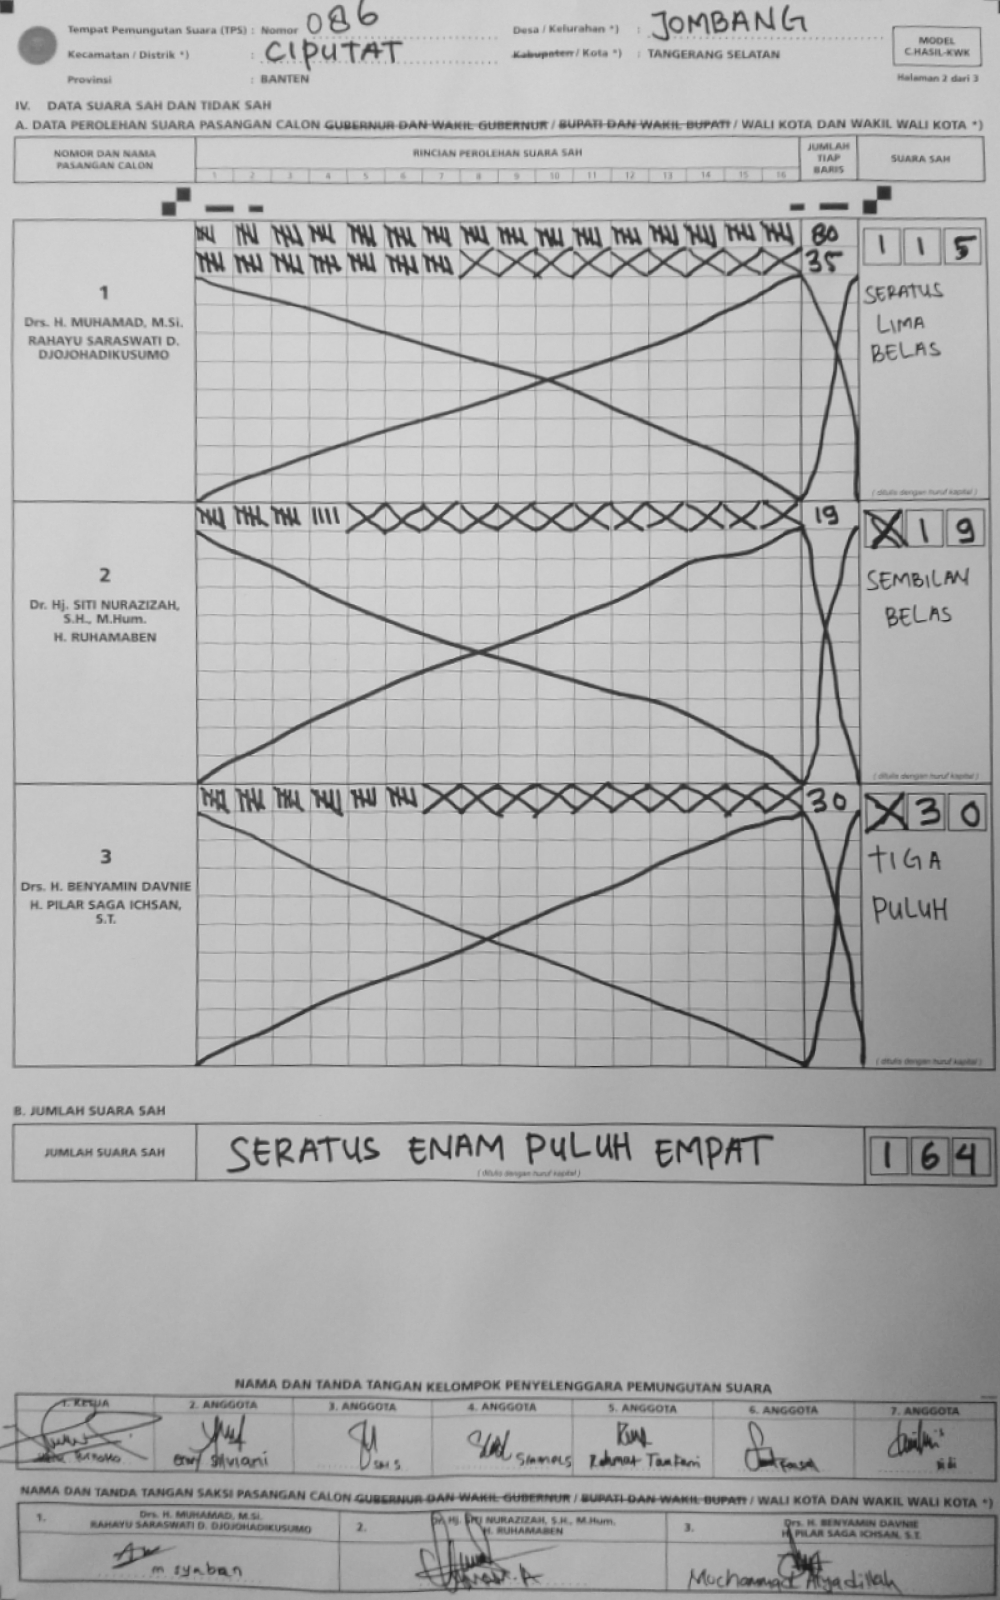 Tempat Pemungutan Suara (TPS) : Nomor 086
Desa / Kelurahan *) : JOMBANG
Kecamatan / Distrik *) : CIPUTAT
Kabupaten / Kota *) : TANGERANG SELATAN
Provinsi : BANTEN
MODEL
C.HASIL-KWK
Halaman 2 dari 3
IV. DATA SUARA SAH DAN TIDAK SAH
A. DATA PEROLEHAN SUARA PASANGAN CALON GUBERNUR DAN WAKIL GUBERNUR / BUPATI DAN WAKIL BUPATI / WALI KOTA DAN WAKIL WALI KOTA *)
NOMOR DAN NAMA
PASANGAN CALON
RINCIAN PEROLEHAN SUARA SAH
1 2 3 4 5 6 7 8 9 10 11 12 13 14 15 16
JUMLAH
TIAP
BARIS
SUARA SAH
1
Drs. H. MUHAMAD, M.Si.
RAHAYU SARASWATI D.
DJOJOHADIKUSUMO
80
35
115
SERATUS
LIMA
BELAS
( ditulis dengan huruf kapital )
2
Dr. Hj. SITI NURAZIZAH,
S.H., M.Hum.
H. RUHAMABEN
19
X19
SEMBILAN
BELAS
( ditulis dengan huruf kapital )
3
Drs. H. BENYAMIN DAVNIE
H. PILAR SAGA ICHSAN,
S.T.
30
X30
TIGA
PULUH
( ditulis dengan huruf kapital )
B. JUMLAH SUARA SAH
JUMLAH SUARA SAH
SERATUS ENAM PULUH EMPAT
( ditulis dengan huruf kapital )
164
NAMA DAN TANDA TANGAN KELOMPOK PENYELENGGARA PEMUNGUTAN SUARA
1. KETUA 2. ANGGOTA 3. ANGGOTA 4. ANGGOTA 5. ANGGOTA 6. ANGGOTA 7. ANGGOTA
Silviani
Rahmat
NAMA DAN TANDA TANGAN SAKSI PASANGAN CALON GUBERNUR DAN WAKIL GUBERNUR / BUPATI DAN WAKIL BUPATI / WALI KOTA DAN WAKIL WALI KOTA *)
1. Drs. H. MUHAMAD, M.Si.
RAHAYU SARASWATI D. DJOJOHADIKUSUMO
m syaban
2. Dr. Hj. SITI NURAZIZAH, S.H., M.Hum.
H. RUHAMABEN
3. Drs. H. BENYAMIN DAVNIE
H. PILAR SAGA ICHSAN, S.T.
Muchammad